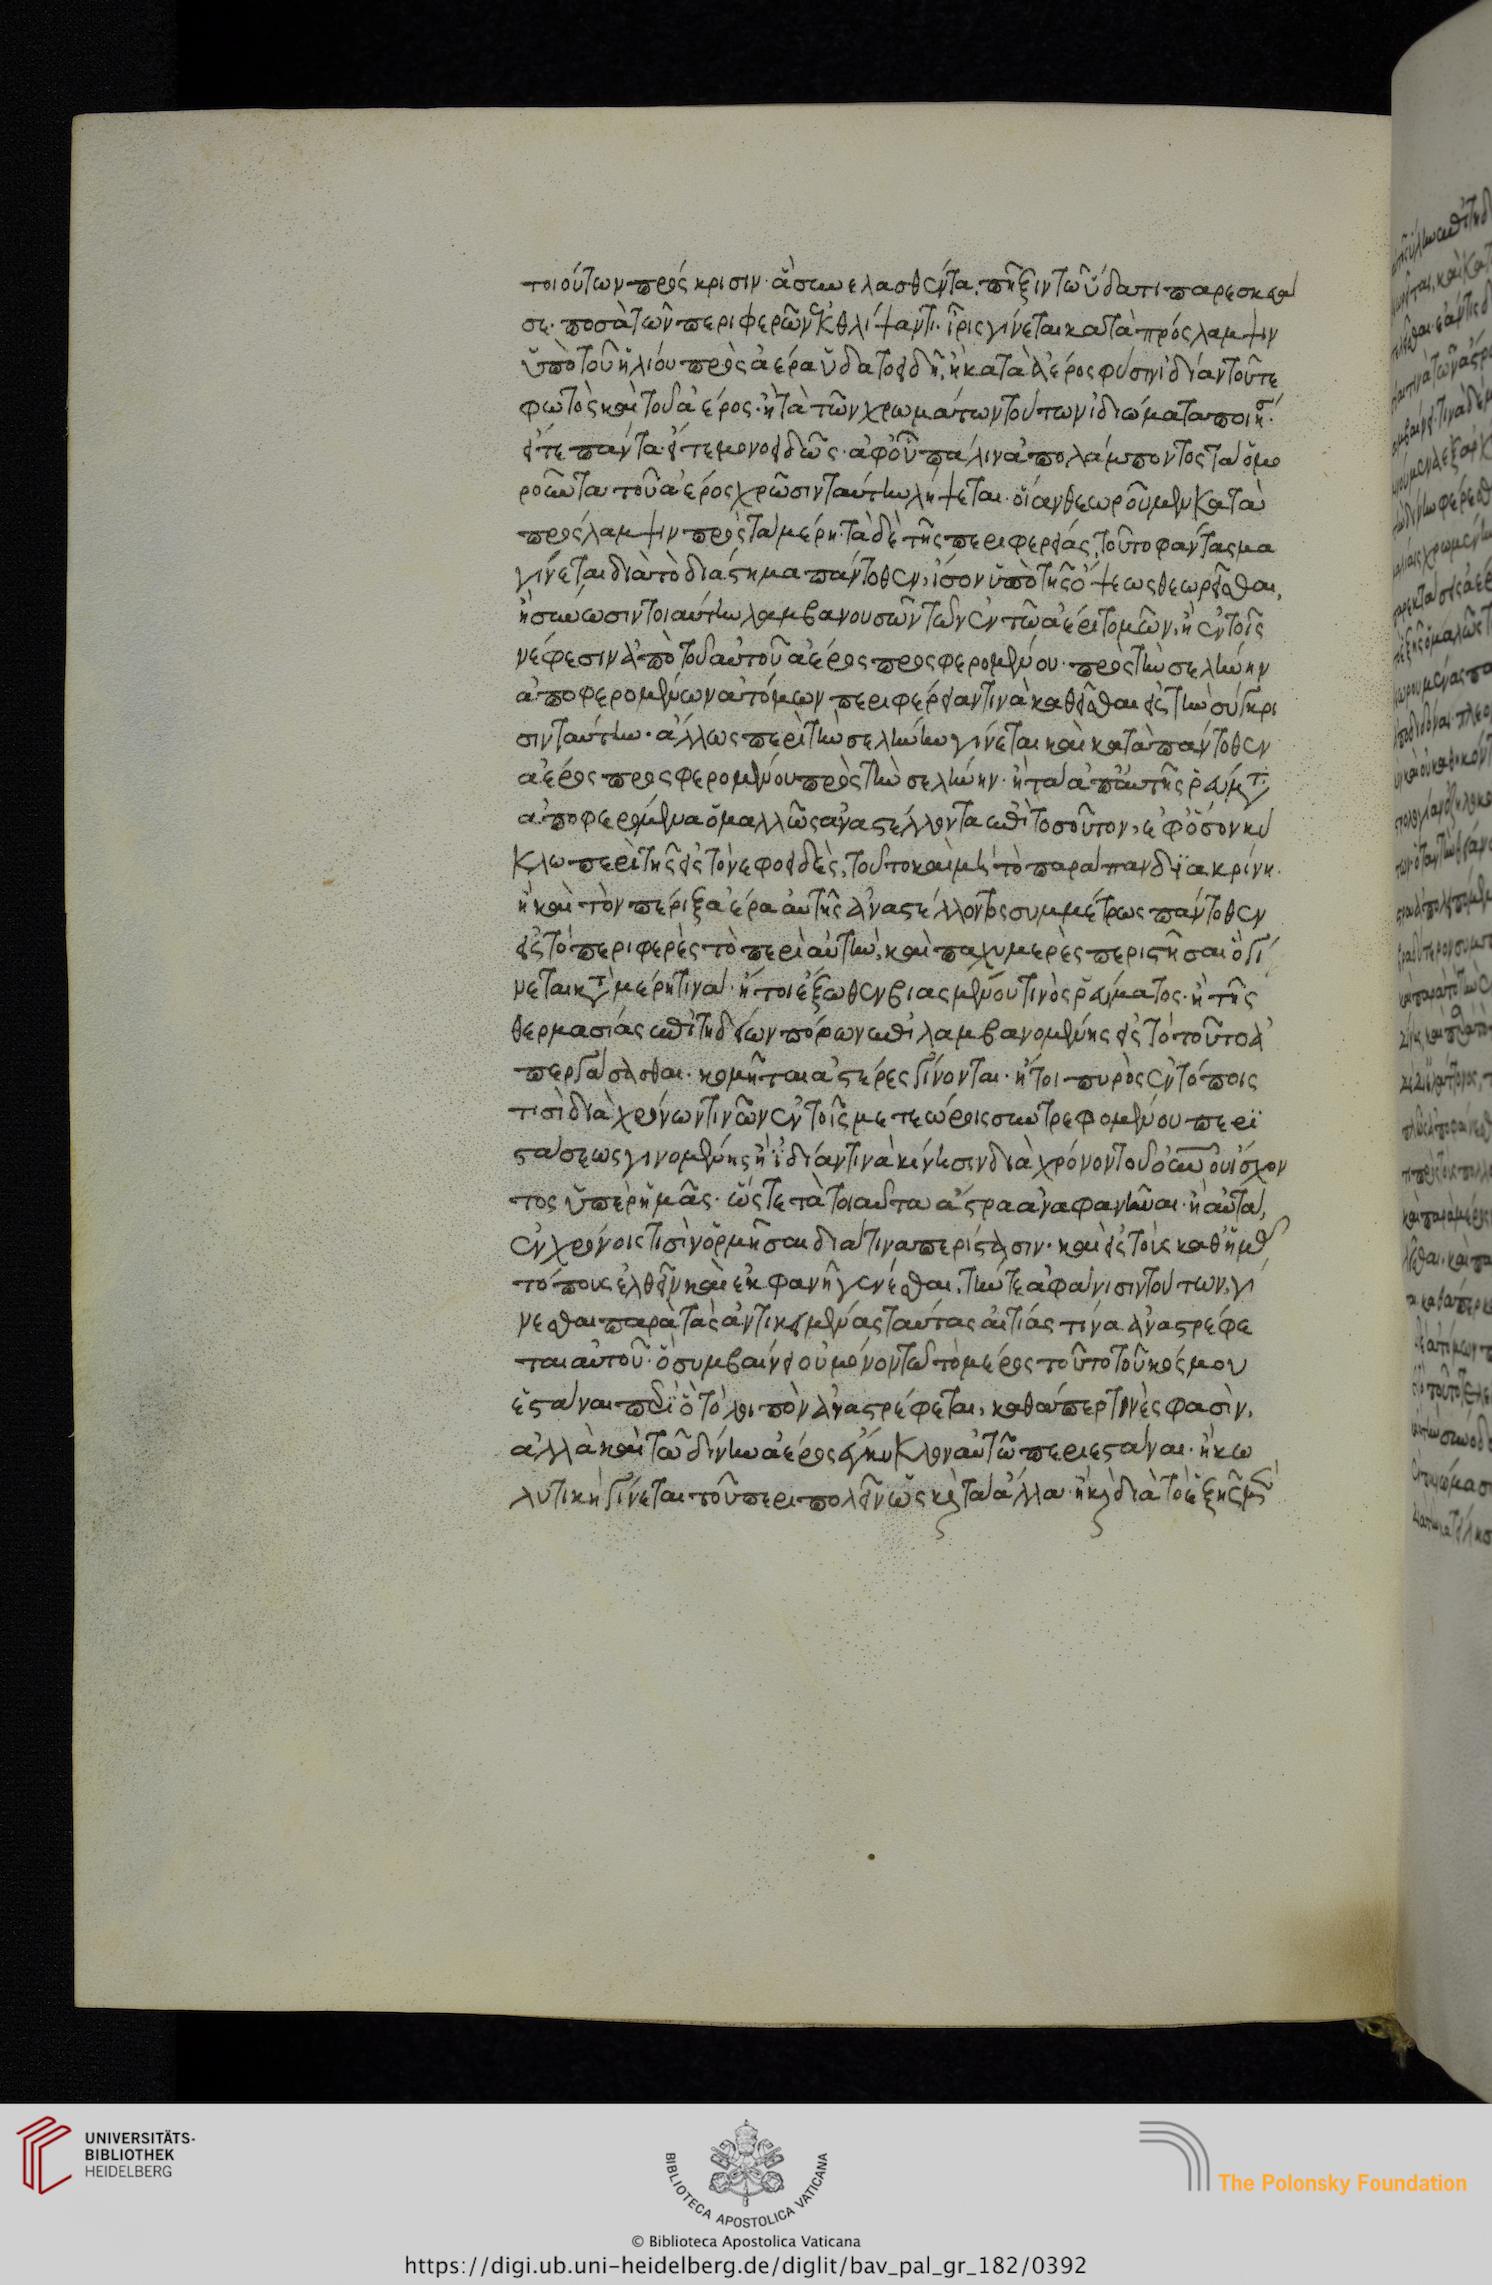 τοιούτων πρός κρισιν· ἃ συνελασθέντα, πῆξιν τῶ ὕδατι παρεσκεύα
σε· ποσὰ τῶν περιφερῶν θλίψαντι· ἶρις γίνεται κατὰ πρόσλαμψιν
ὑπὸ τοῦ ἡλίου πρὸς ἀέρα ὑδατοειδῆ, ἢ κατὰ ἀέρος φύσιν ἰδίαν τοῦ τε
φωτὸς καὶ τοῦ ἀέρος· ἣ τὰ τῶν χρωμάτων τούτων ἰδιώματα ποιήσ·
εἴτε πάντα· εἴτε μονοειδῶς· ἀφ' οὗ πάλιν ἀπολάμποντος τὰ ὁμο
ροῦντα τοῦ ἀέρος χρῶσιν ταύτην λήψεται· οἵαν θεωροῦμεν κατὰ
πρόσλαμψιν πρὸς τὰ μέρη· τὰ δὲ τῆς περιφερείας, τοῦτο φάντασμα
γίνεται διὰ τὸ διάστημα πάντοθεν, ἴσον ὑπὸ τῆς ὄψεως θεωρεῖσθαι,
ἢ σύνωσιν τοιαύτην λαμβανουσῶν τῶν ἐν τῶ ἀέρι τομῶν, ἢ ἐν τοῖς
νέφεσιν ἀπὸ τοῦ αὐτοῦ ἀέρος προσφερομένου· πρὸς τὴν σελήνην
ἀποφερομένων ἀτόμων περιφέρειάν τινα καθεῖσθαι εἰς τὴν σύγκρι
σιν ταύτην· ἅλλως περὶ τὴν σελήνην γίνεται καὶ κατὰ πάντοθεν
ἀέρος προσφερομένου πρὸς τὴν σελήνην· ἢ τὰ ἀπ' αὐτῆς ῥεύματ
ἀποφερόμενα ὁμαλῶς ἀναστέλλοντα ἐπὶ τοσοῦτον, ἐφ' ὅσον κύ
κλω περὶ τῆς εἰς τὸ νεφοειδὲς, τοῦτο καὶ μὴ τὸ παράπαν διακρίνη·
ἢ καὶ τὸν πέριξ ἀέρα αὐτῆς ἀναστέλλοντος συμμέτρως πάντοθεν
εἰς τὸ περιφερὲς τὸ περὶ αὐτὴν, καὶ παχυμερὲς περιστῆσαι ὃ γί
νεται κατὰ μέρη τινὰ· ἤτοι ἔξωθεν βιασμένου τινὸς ῥεύματος· ἢ τῆς
θερμασίας ἐπιτηδείων πόρων ἐπιλαμβανομένης εἰς τὸ τοῦτο ἀ
περγάσασθαι· κομῆται ἀστέρες γίνονται· ἤτοι πυρὸς ἐν τόποις
τισὶ διὰ χρόνων τινῶν ἐν τοῖς μετεώροις συντρεφομένου περι
στάσεως γινομένης ἢ ἰδίαν τινὰ κίνησιν διὰ χρόνον τοῦ οὐρανοῦ ἴσχον
τος ὑπὲρ ἡμᾶς· ὥστε τὰ τοιαῦτα ἄστρα ἀναφανῆναι· ἢ αὐτὰ,
ἐν χρόνοις τισὶν ὁρμῆσαι διά τινα περίστασιν· καὶ εἰς τοὺς καθ' ἡμᾶς
τόπους ἐλθεῖν καὶ ἐκφανῆ γενέσθαι, τήν τε ἀφάνισιν τούτων, γί
νεσθαι παρὰ τὰς ἀντικειμένας ταύτας αἰτίας τινα ἀναστρέφε
ται αὐτοῦ· ὃ συμβαίνει οὐ μόνον τῶ τὸ μέρος τοῦτο τοῦ κόσμου
ἑστάναι περὶ ὃ τὸ λοιπὸν ἀναστρέφεται, καθάπερ τινές φασὶν,
ἀλλὰ καὶ τῶ δίνην ἀέρος ἔγκυκλον αὐτῶ περιεστάναι· ἢ κω
λυτικὴ γίνεται τοῦ περιπολεῖν ὡς καὶ τὰ ἄλλα· ἢ καὶ διὰ τὸ ἑξῆς μὲν
UNIVERSITÄTS-
BIBLIOTHEK
HEIDELBERG
BIBLIOTECA APOSTOLICA VATICANA
© Biblioteca Apostolica Vaticana
The Polonsky Foundation
https://digi.ub.uni-heidelberg.de/diglit/bav_pal_gr_182/0392